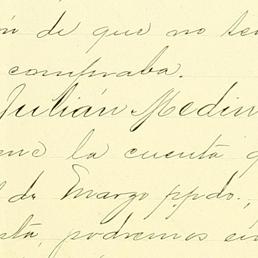 ón de que no ten
compraba.
Julián Medin
ene la cuenta q
l de Marzo ppdo.,
stá, podremos en